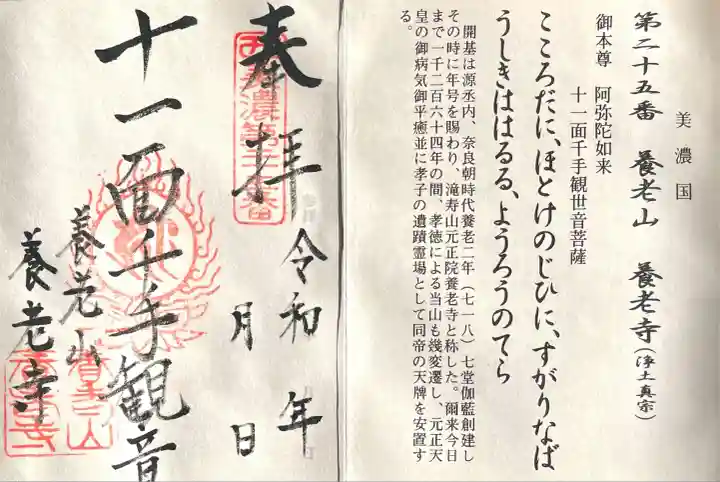 美濃国
第二十五番 養老山 養老寺(浄土真宗)
御本尊 阿弥陀如来
十一面千手観世音菩薩
こころだに、ほとけのじひに、すがりなば
うしきははるる、ようろうのてら
開基は源丞内、奈良朝時代養老二年(七一八)七堂伽藍創建し
その時に年号を賜わり、滝寿山元正院養老寺と称した。爾来今日
まで一千二百六十四年の間、孝徳による当山も幾変遷し、元正天
皇の御病気御平癒並に孝子の遺蹟霊場として同帝の天牌を安置す
る。
奉拝
令和 年
月 日
十一面千手観音
養老山
養老寺